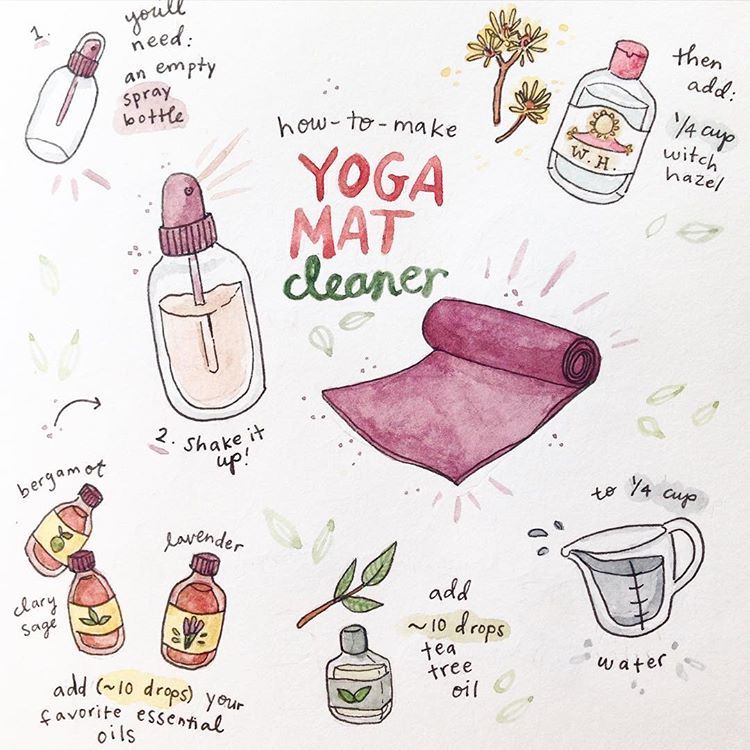 how-to-make
YOGA
MAT
cleaner
1.
you'll
need:
an empty
spray
bottle
then
add:
1/4 cup
witch
hazel
W. H.
to 1/4 cup
water
add
~10 drops
tea
tree
oil
bergamot
clary
sage
lavender
add (~10 drops) your
favorite essential
oils
2. shake it
up!